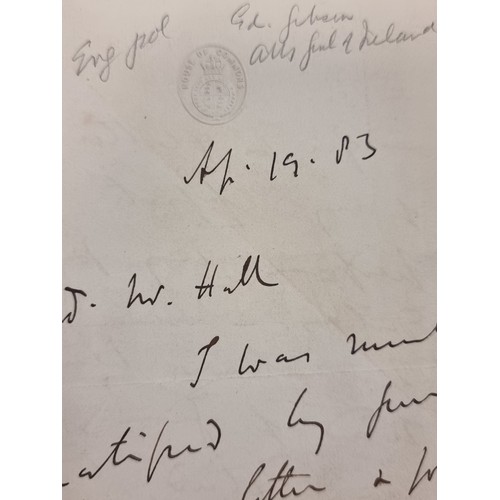 Eng pol
Ed. Gibson
Atts Genl of Ireland
HOUSE OF COMMONS
Ap. 19. 83
d. Mr. Hall
I was mu
atified by
letter &